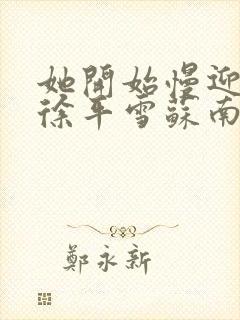 她開始慢迎
徐平雪蘇南
鄭永新